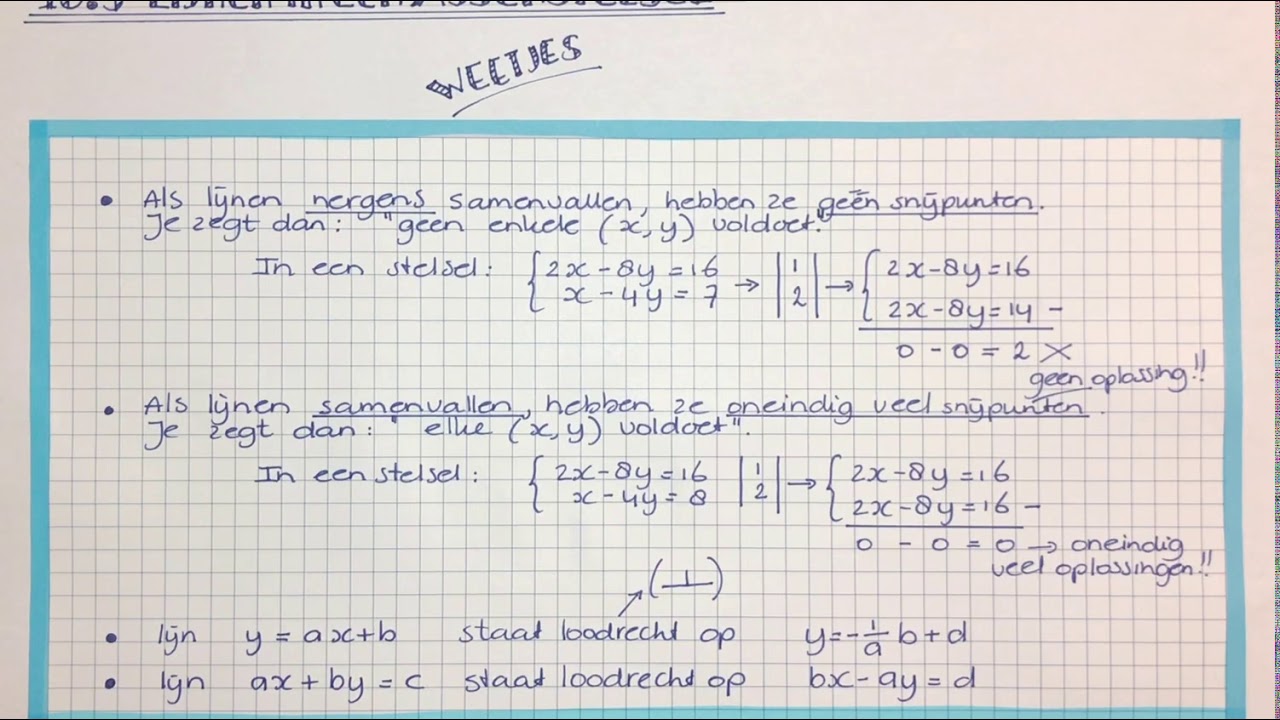 WEETJES
• Als lijnen nergens samenvallen, hebben ze geén snijpunten.
Je zegt dan: "geen enkele (x,y) voldoet."
In een stelsel: { 2x-8y=16 → | 1 | → { 2x-8y=16
x-4y=7 | 2 | 2x-8y=14 -
0 - 0 = 2 X
geen oplassing!!
• Als lijnen samenvallen, hebben ze oneindig veel snijpunten
Je zegt dan: "elke (x,y) voldoet".
In een stelsel: { 2x-8y=16 | 1 | → { 2x-8y=16
x-4y=8 | 2 | 2x-8y=16 -
0 - 0 = 0 → oneindig
veel oplassingen!!
(⊥)
• lijn y = ax+b staat loodrecht op y=-1/a b+d
• lijn ax+by=c staat loodrecht op bx-ay=d